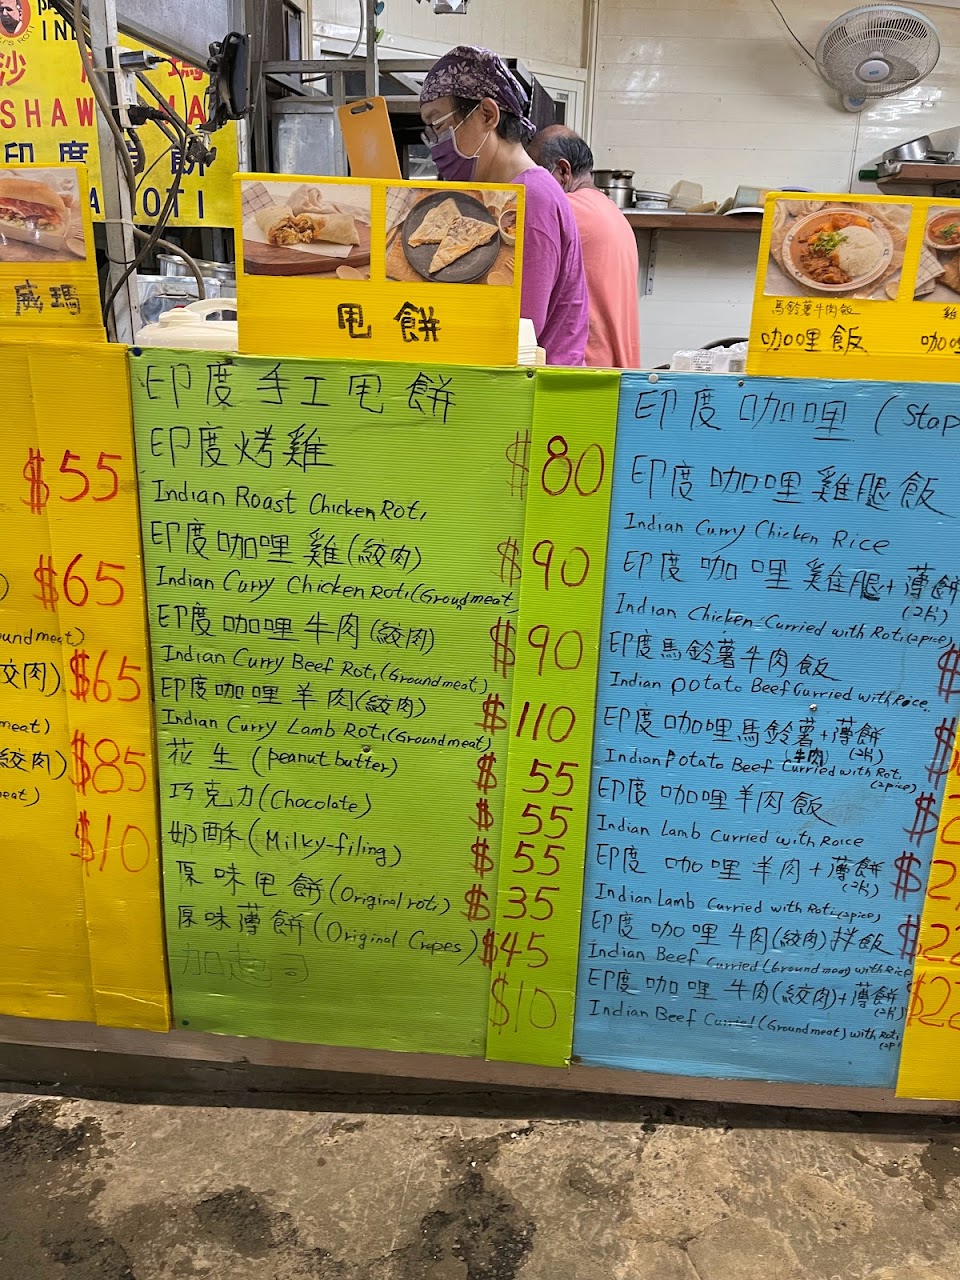 IN
沙 瑪
SHAW MA
印度 餅
ROTI
威瑪
甩餅
馬鈴薯牛肉飯
咖哩飯
雞
咖哩
$55
$65
ound meat)
絞肉) $65
meat)
絞肉) $85
eat)
$10
印度手工甩餅
印度烤雞 $80
Indian Roast Chicken Roti
印度咖哩雞(絞肉) $90
Indian Curry Chicken Roti(Groundmeat
印度咖哩牛肉(絞肉) $90
Indian Curry Beef Roti(Groundmeat)
印度咖哩羊肉(絞肉) $110
Indian Curry Lamb Roti(Groundmeat)
花生(peanut butter) $55
巧克力(Chocolate) $55
奶酥(Milky-filing) $55
原味甩餅(Original roti) $35
原味薄餅(Original Crepes) $45
加起司 $10
印度咖哩(Stap
印度咖哩雞腿飯
Indian Curry Chicken Rice
印度咖哩雞腿+薄餅
(2片)
Indian Chicken-Curried with Roti(2pice)
印度馬鈴薯牛肉飯 $
Indian potato Beef Curried with Rice.
印度咖哩馬鈴薯+薄餅 $
牛肉 (2片)
Indian Potato Beef Curried with Roti
(2pice)
印度咖哩羊肉飯 $2
Indian Lamb Curried with Roice
印度咖哩羊肉+薄餅 $2
(2片)
Indian Lamb Curried with Roti(2pice)
印度咖哩牛肉(絞肉)拌飯 $22
Indian Beef Curried (Groundmeat) with Rice
印度咖哩牛肉(絞肉)+薄餅 $22
(2片)
Indian Beef Curried (Groundmeat) with Roti
(2P